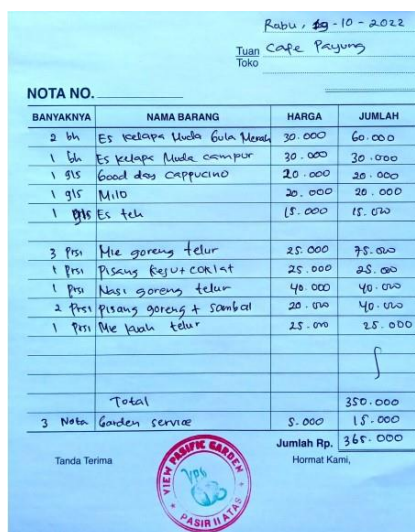 Rabu, 19-10-2022
Tuan Cafe Payung
Toko
NOTA NO.
BANYAKNYA NAMA BARANG HARGA JUMLAH
2 bh Es kelapa Muda Gula Merah 30.000 60.000
1 bh Es kelapa Muda campur 30.000 30.000
1 gls Good day Cappucino 20.000 20.000
1 gls Milo 20.000 20.000
1 gls Es teh 15.000 15.000
3 Prsi Mie goreng telur 25.000 75.000
1 Prsi Pisang keju + coklat 25.000 25.000
1 Prsi Nasi goreng telur 40.000 40.000
2 Prsi pisang goreng + sambal 20.000 40.000
1 Prsi Mie kuah telur 25.000 25.000
Total 350.000
3 Nota Garden service 5.000 15.000
Jumlah Rp. 365.000
Tanda Terima Hormat Kami,
VIEW PASIFIC GARDEN
VPG
PASIR II ATAS